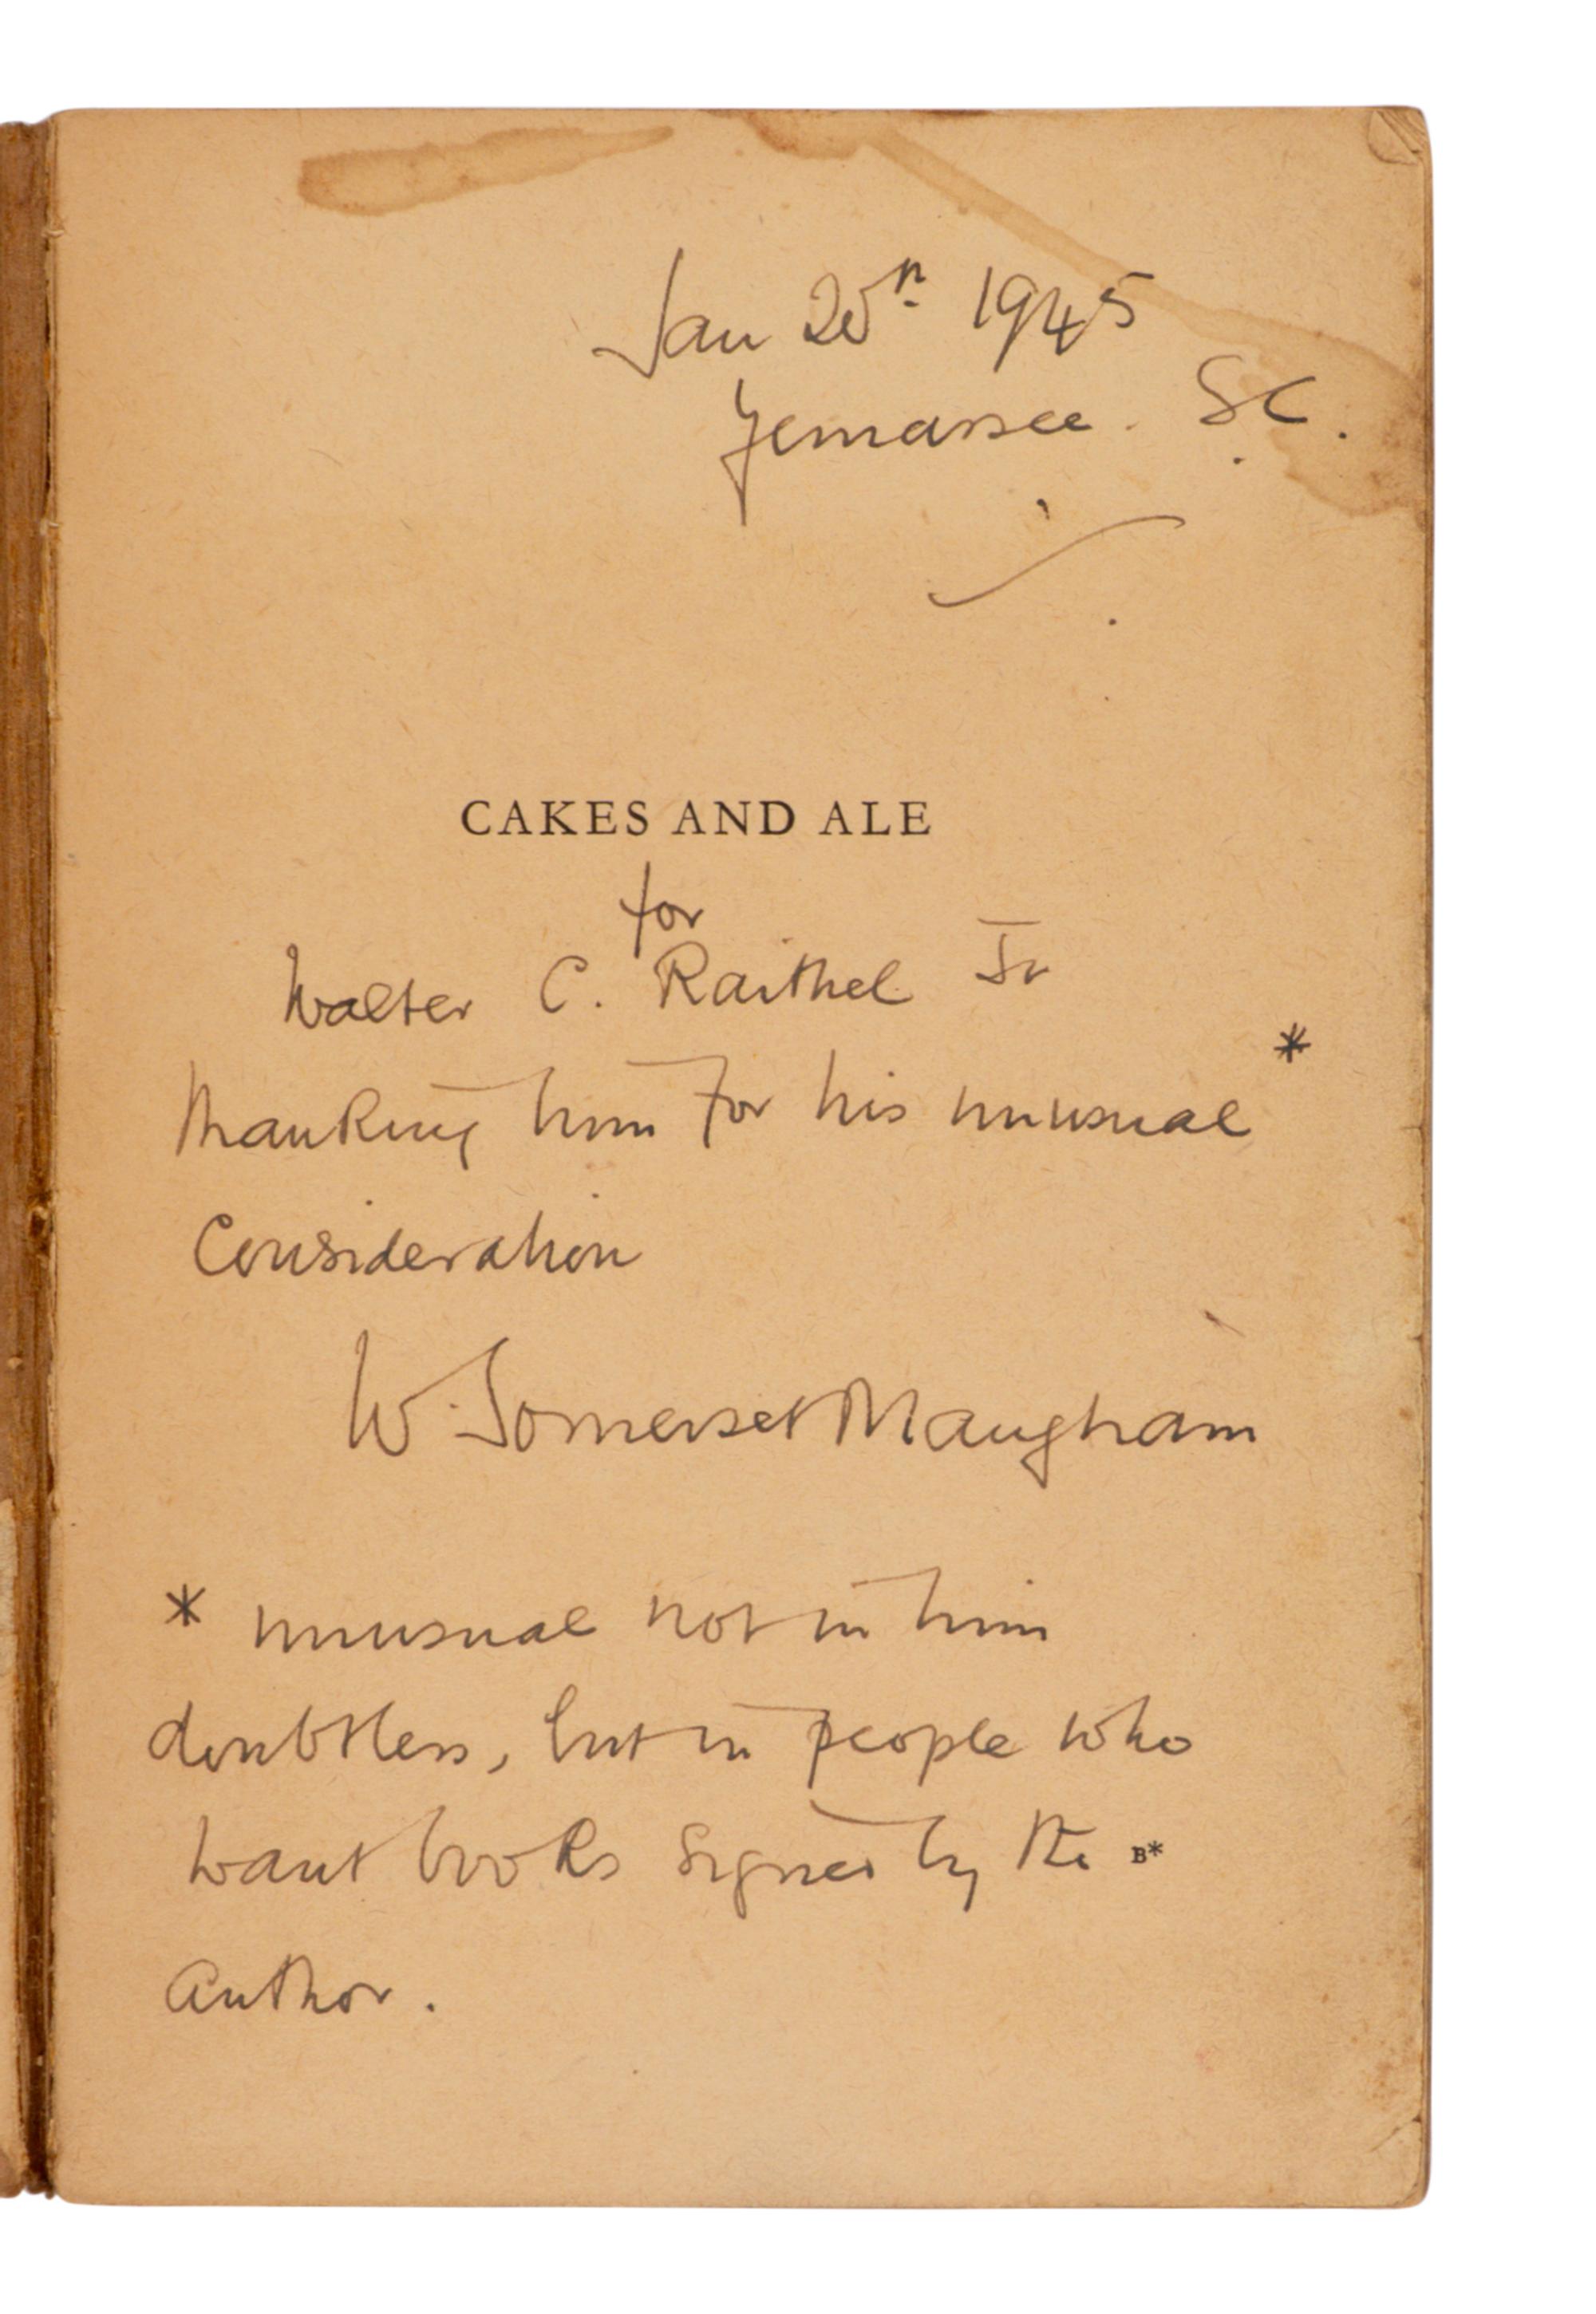 Jan 20th 1945
Yemassee. SC.
CAKES AND ALE
for
Walter C. Raithel Jr
thanking him for his unusual *
Consideration
W. Somerset Maugham
* unusual not in him
doubtless, but in people who
want books signed by the B*
author.